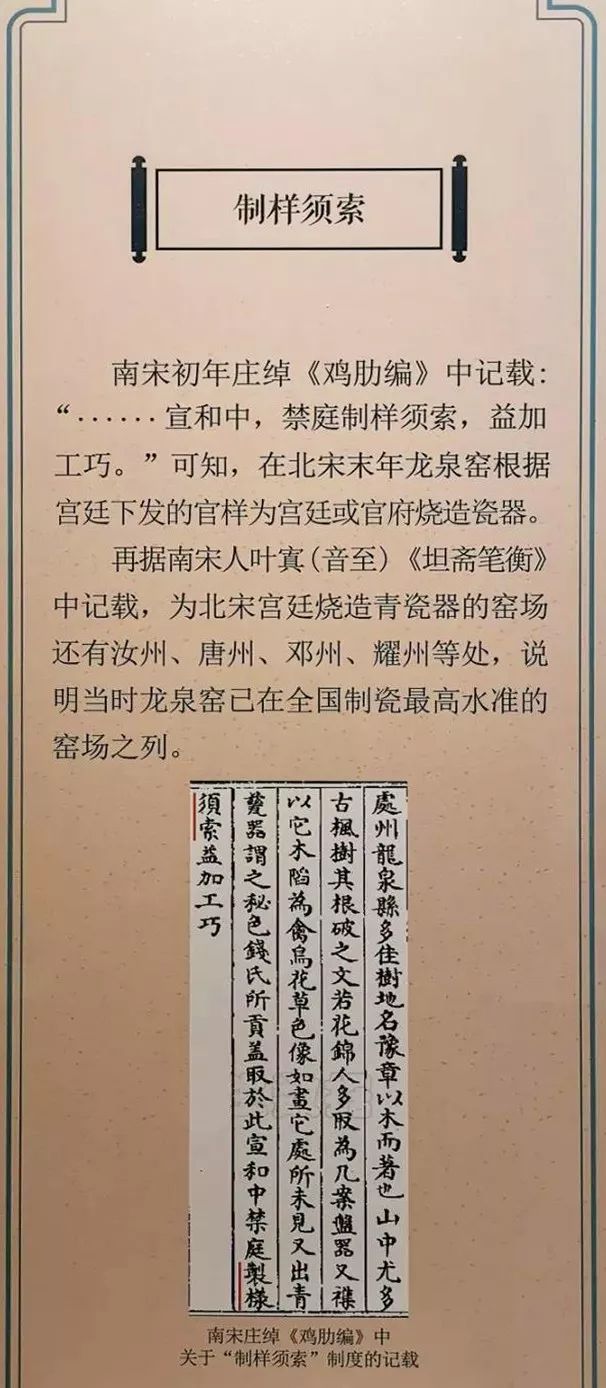 制样须索
南宋初年庄绰《鸡肋编》中记载:
“······宣和中，禁庭制样须索，益加
工巧。”可知，在北宋末年龙泉窑根据
宫廷下发的官样为宫廷或官府烧造瓷器。
再据南宋人叶寘(音至)《坦斋笔衡》
中记载，为北宋宫廷烧造青瓷器的窑场
还有汝州、唐州、邓州、耀州等处，说
明当时龙泉窑已在全国制瓷最高水准的
窑场之列。
處州龍泉縣多佳樹地名豫章以木而著也山中尤多
古楓樹其根破之文若花錦人多取為几案盤器又襍
以它木陷為禽鳥花草色像如畫它處所未見又出青
甆器謂之秘色錢氏所貢蓋取於此宣和中禁庭製樣
須索益加工巧
南宋庄绰《鸡肋编》中
关于“制样须索”制度的记载